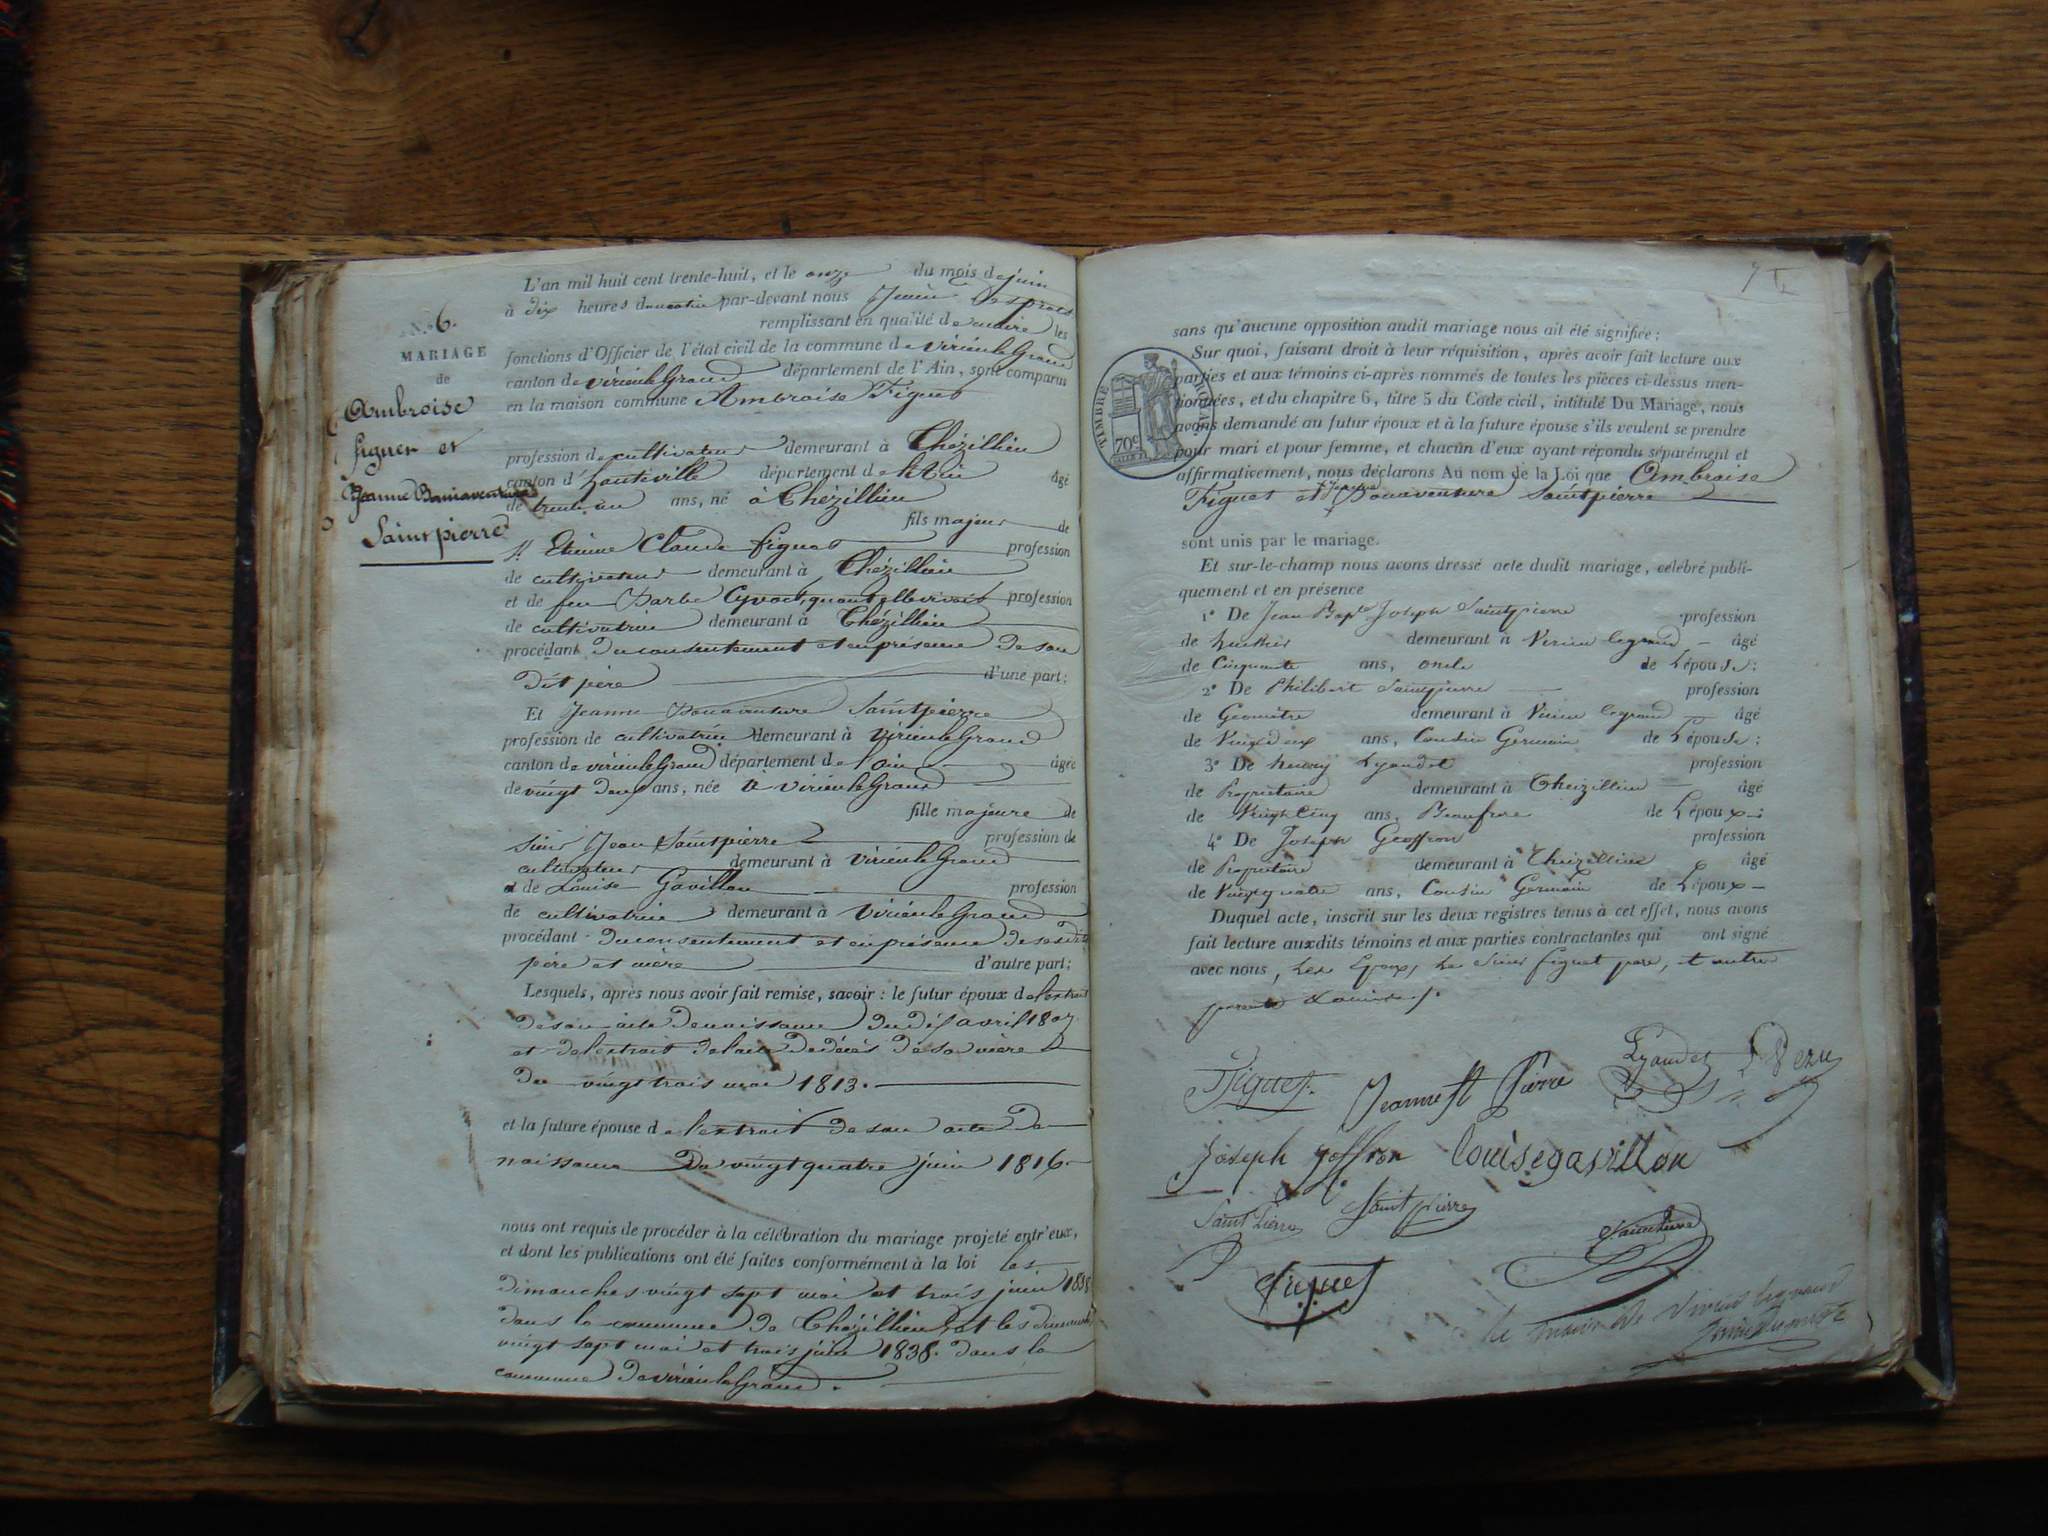 N.° 6.
MARIAGE
de
Ambroise
figuet et
Jeanne Bonaventure
Saintpierre
L'an mil huit cent trente-huit, et le onze du mois de juin
à dix heures du matin par-devant nous
remplissant en qualité de maire les
fonctions d'Officier de l'état civil de la commune de virieu le Grand
canton de virieu le Grand département de l'Ain, sont comparus
en la maison commune Ambroise Figuet
profession de cultivateur demeurant à Thézillieu
canton d'hauteville département de l'Ain âgé
de trente un ans, né à Thézillieu
fils majeur de
Sr Etienne Claude figuet profession
de cultivateur demeurant à Thézillieu
et de feu Barbe Cyvoct, quand elle vivoit profession
de cultivatrice demeurant à Thézillieu
procédant du consentement et en présence de son
dit père d'une part;
Et Jeanne Bonaventure Saintpierre
profession de cultivatrice demeurant à virieu le Grand
canton de virieu le Grand département de l'ain âgée
de vingt deux ans, née à virieu le Grand
fille majeure de
sieur Jean Saintpierre profession de
cultivateur demeurant à virieu le Grand
et de Louise Gavillon profession
de cultivatrice demeurant à virieu le Grand
procédant du consentement et en présence de ses dits
père et mère d'autre part;
Lesquels, après nous avoir fait remise, savoir: le futur époux de l'extrait
de son acte de naissance du dix avril 1807
et de l'extrait de l'acte de décès de sa mère
du vingt trois mai 1813.
et la future épouse de l'extrait de son acte de
naissance du vingt quatre juin 1816
nous ont requis de procéder à la célébration du mariage projeté entr'eux,
et dont les publications ont été faites conformément à la loi les
dimanches vingt sept mai et trois juin 1838
dans la commune de Thézillieu, et les dimanches
vingt sept mai et trois juin 1838. dans la
commune de virieu le Grand.
7
sans qu'aucune opposition audit mariage nous ait été signifiée;
Sur quoi, faisant droit à leur réquisition, après avoir fait lecture aux
parties et aux témoins ci-après nommés de toutes les pièces ci-dessus men-
tionnées, et du chapitre 6, titre 5 du Code civil, intitulé Du Mariage, nous
avons demandé au futur époux et à la future épouse s'ils veulent se prendre
pour mari et pour femme, et chacun d'eux ayant répondu séparément et
affirmativement, nous déclarons Au nom de la Loi que Ambroise
Figuet et Jeanne Bonaventure Saintpierre
TIMBRE ROYAL
70c
sont unis par le mariage.
Et sur-le-champ nous avons dressé acte dudit mariage, célébré publi-
quement et en présence
1° De Jean Bapte Joseph Saintpierre profession
de huissier demeurant à Virieu legrand âgé
de Cinquante ans, oncle de L'épouse;
2° De Philibert Saintpierre profession
de Geomètre demeurant à Virieu legrand âgé
de Vingt deux ans, Cousin Germain de L'épouse;
3° De henry Lyaudet profession
de Propriétaire demeurant à Theizillieu âgé
de Vingt Cinq ans, Beaufrere de L'époux;
4° De Joseph Geoffron profession
de Propriétaire demeurant à Theizillieu âgé
de Vingt quatre ans, Cousin Germain de L'époux
Duquel acte, inscrit sur les deux registres tenus à cet effet, nous avons
fait lecture auxdits témoins et aux parties contractantes qui ont signé
avec nous, Les Epoux, Le Sieur figuet pere, et autres
parents
Figuet. Jeanne St Pierre Lyaudet
Joseph joffron louise gavillon
Saint Pierre Saint Pierre Saintpierre
Figuet
le maire de Virieu legrand